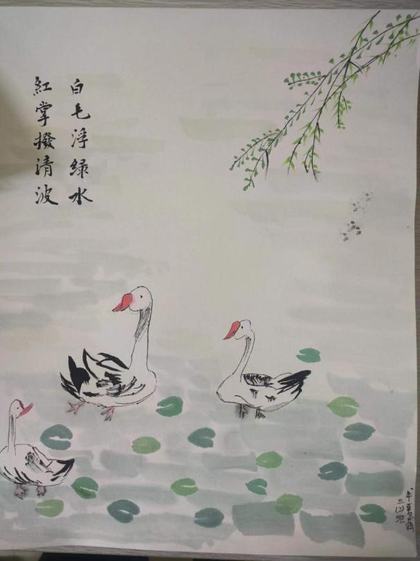 白毛浮绿水
紅掌撥清波